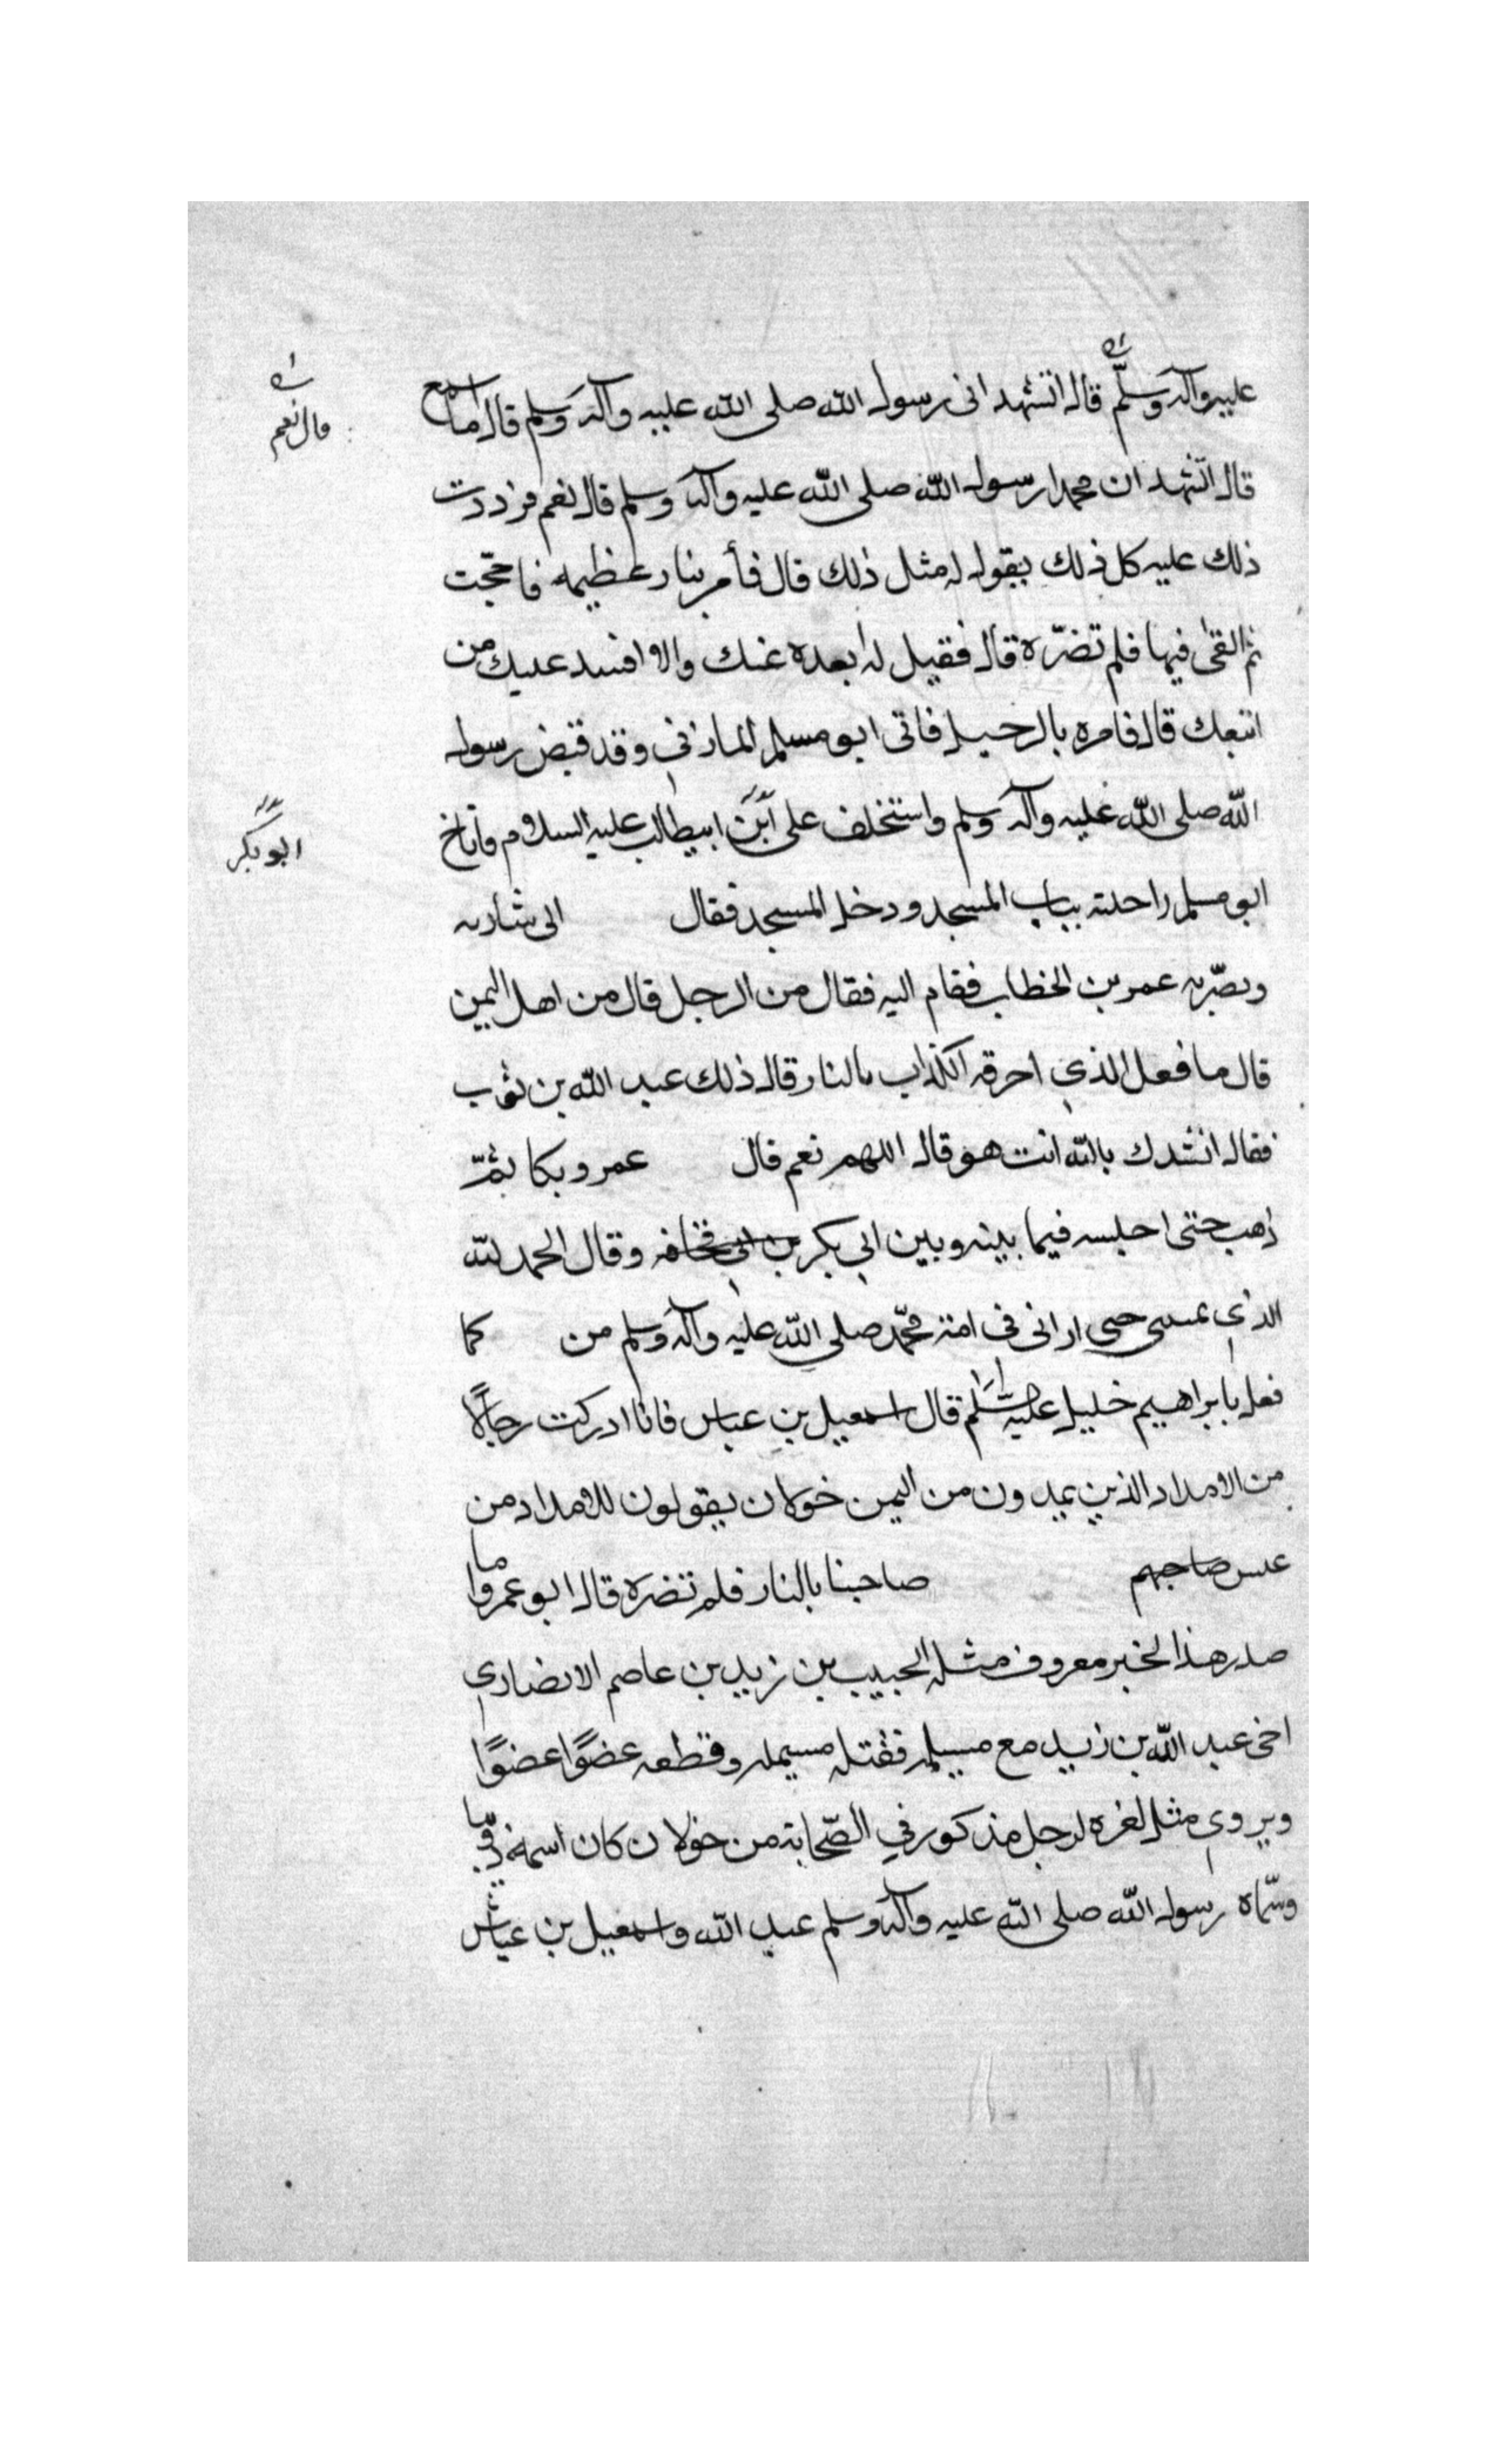 عليه وآله وسلم قال اتشهد انى رسول الله صلى الله عليه وآله وسلم قال ما اسمع
قال نعم
قال اتشهد ان محمدا رسول الله صلى الله عليه وآله وسلم قال نعم فرددت
ذلك عليه كل ذلك يقول له مثل ذلك قال فأمر بنار عظيمه فاججت
ثم القى فيها فلم تضرّه قال فقيل له ابعده عنك والا افسد عليك من
اتبعك قال فامره بالرحيل فاتى ابو مسلم المازنى وقد قبض رسول
الله صلى الله عليه وآله وسلم واستخلف على ابن ابيطالب عليه السلام فاناخ
ابو بكر
ابو مسلم راحلته بباب المسجد ودخل المسجد فقال الى ساريه
وبصّر به عمر بن الخطاب فقام اليه فقال من الرجل قال من اهل اليمن
قال ما فعل الذي احرقه الكذاب بالنار قال ذلك عبد الله بن ثوب
فقال انشدك بالله انت هو قال اللهم نعم قال عمر وبكا ثمّ
ذهب حتى اجلسه فيما بينه وبين ابي بكر بن ابي قحافه وقال الحمد لله
الذي حتى ارانى فى امة محمّد صلى الله عليه وآله وسلم من كما
فعل بابراهيم خليل عليه السّلم قال اسمعيل بن عباس فانا ادركت رجالًا
من الامداد الذين يمدون من اليمن خولان يقولون للامداد من
عنس صاحبهم صاحبنا بالنار فلم تضره قال ابو عمر واما
صدر هذا الخبر معروف مثله لحبيب بن زيد بن عاصم الانصاري
اخى عبد الله بن زيد مع مسيلمه فقتله مسيلمه وقطعه عضوًا عضوًا
ويروى مثل لغره لرجل مذكور في الصّحابة من خولان كان اسمه
وسّماه رسول الله صلى الله عليه وآله وسلم عبد الله واسمعيل بن عياش